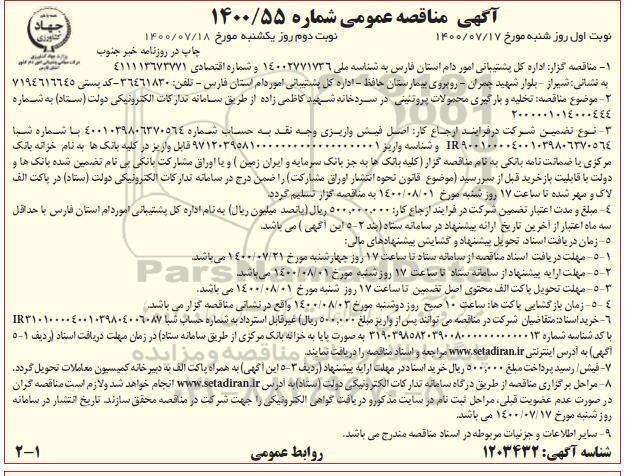 آگهی مناقصه عمومی شماره ۱۴۰۰/۵۵
نوبت اول روز شنبه مورخ ۱۴۰۰/۰۷/۱۷ نوبت دوم روز یکشنبه مورخ ۱۴۰۰/۰۷/۱۸
چاپ در روزنامه خبر جنوب
جهاد کشاورزی
۱- مناقصه گزار: اداره کل پشتیبانی امور دام استان فارس به شناسه ملی ۱۴۰۰۲۷۷۱۷۳۶ و شماره اقتصادی ۴۱۱۱۱۳۶۷۳۷۷۱
به نشانی: شیراز - بلوار شهید چمران - روبروی بیمارستان حافظ - اداره کل پشتیبانی امور دام استان فارس - تلفن: ۳۶۴۶۱۸۳۰-کد پستی ۷۱۹۴۶۱۶۶۴۵
۲- موضوع مناقصه: تخلیه و بارگیری محمولات پروتئینی در سردخانه شهید کاظمی زاده از طریق سامانه تدارکات الکترونیکی دولت (ستاد) به شماره
۲۰۰۰۰۰۱۰۱۴۰۰۰۴۴۴
۳- نوع تضمین شرکت درفرایند ارجاع کار: اصل فیش واریزی وجه نقد به حساب شماره ۴۰۰۱۰۳۹۸۰۶۳۷۰۵۶۴ با شماره شبا
IR ۹۰۰۱۰۰۰۰۴۰۰۱۰۳۹۸۰۶۳۷۰۵۶۴ و شناسه واریز قابل واریز در کلیه بانک ها به نام خزانه بانک
مرکزی یا ضمانت نامه بانکی به نام مناقصه گزار (کلیه بانک ها به جز بانک سرمایه و ایران زمین ) و یا اوراق مشارکت بانکی بی نام تضمین شده بانک ها و
دولت با قابلیت بازخرید قبل از سررسید (موضوع قانون نحوه انتشار اوراق مشارکت) را ضمن درج در سامانه تدارکات الکترونیکی دولت (ستاد) در پاکت الف
لاک و مهر شده تا ساعت ۱۷ روز شنبه مورخ ۱۴۰۰/۰۸/۰۱ به مناقصه گزار تسلیم گردد.
۴- مبلغ و مدت اعتبار تضمین شرکت در فرایند ارجاع کار: ۵۰۰,۰۰۰,۰۰۰ ریال (پانصد میلیون ریال) به نام اداره کل پشتیبانی اموردام استان فارس با حداقل
سه ماه اعتبار از آخرین تاریخ ارائه پیشنهاد در سامانه ستاد (بند ۲-۵ این آگهی ) می باشد.
۵- زمان دریافت اسناد، تحویل پیشنهاد و گشایش پیشنهادهای مالی:
۱-۵- مهلت دریافت اسناد مناقصه از سامانه ستاد تا ساعت ۱۷ روز چهارشنبه مورخ ۱۴۰۰/۰۷/۲۱ می‌باشد.
۲-۵- مهلت ارایه پیشنهاد از سامانه ستاد تا ساعت ۱۷ روز شنبه مورخ ۱۴۰۰/۰۸/۰۱ می‌باشد.
۳-۵- مهلت تحویل پاکت الف محتوی اصل تضمین تا ساعت ۱۷ روز شنبه مورخ ۱۴۰۰/۰۸/۰۱ می باشد.
۴-۵- زمان بازگشایی پاکت ها: ساعت ۱۰ صبح روز دوشنبه مورخ ۱۴۰۰/۰۸/۰۳ واقع در نشانی مناقصه گزار می باشد.
۶- خرید اسناد: متقاضیان شرکت در مناقصه می توانند پس از واریز مبلغ ۵۰۰,۰۰۰ ریال) غیرقابل استرداد به شماره حساب شبا IR۳۱۰۱۰۰۰۰۴۰۰۱۰۳۹۸۰۴۰۰۶۰۸۷
با کد شناسه شماره به صورت پایا به خزانه بانک مرکزی از طریق سامانه ستاد) در زمان مهلت دریافت اسناد (ردیف ۱-۵
آگهی) به آدرس اینترنتی www.setadiran.ir مراجعه و اسناد مناقصه را دریافت نمایند.
۷- فیش/ رسید پرداخت مبلغ ۵۰۰,۰۰۰ ریال خرید اسناد در مهلت ارایه پیشنهاد (ردیف ۳-۵ این آگهی) به همراه پاکت الف به دبیرخانه کمیسیون معاملات تحویل گردد.
۸- مراحل برگزاری مناقصه از طریق درگاه سامانه تدارکات الکترونیکی دولت (ستاد) به آدرس www.setadiran.ir انجام خواهد شد ولازم است مناقصه گران
در صورت عدم عضویت قبلی، مراحل ثبت نام در سایت مذکور و دریافت گواهی الکترونیکی را جهت شرکت در مناقصه محقق سازند. تاریخ انتشار در سامانه
روز شنبه مورخ ۱۴۰۰/۰۷/۱۷ می باشد.
۹- سایر اطلاعات و جزئیات مربوطه در اسناد مناقصه مندرج می باشد.
شناسه آگهی: ۱۲۰۳۴۳۲ روابط عمومی ۲-۱